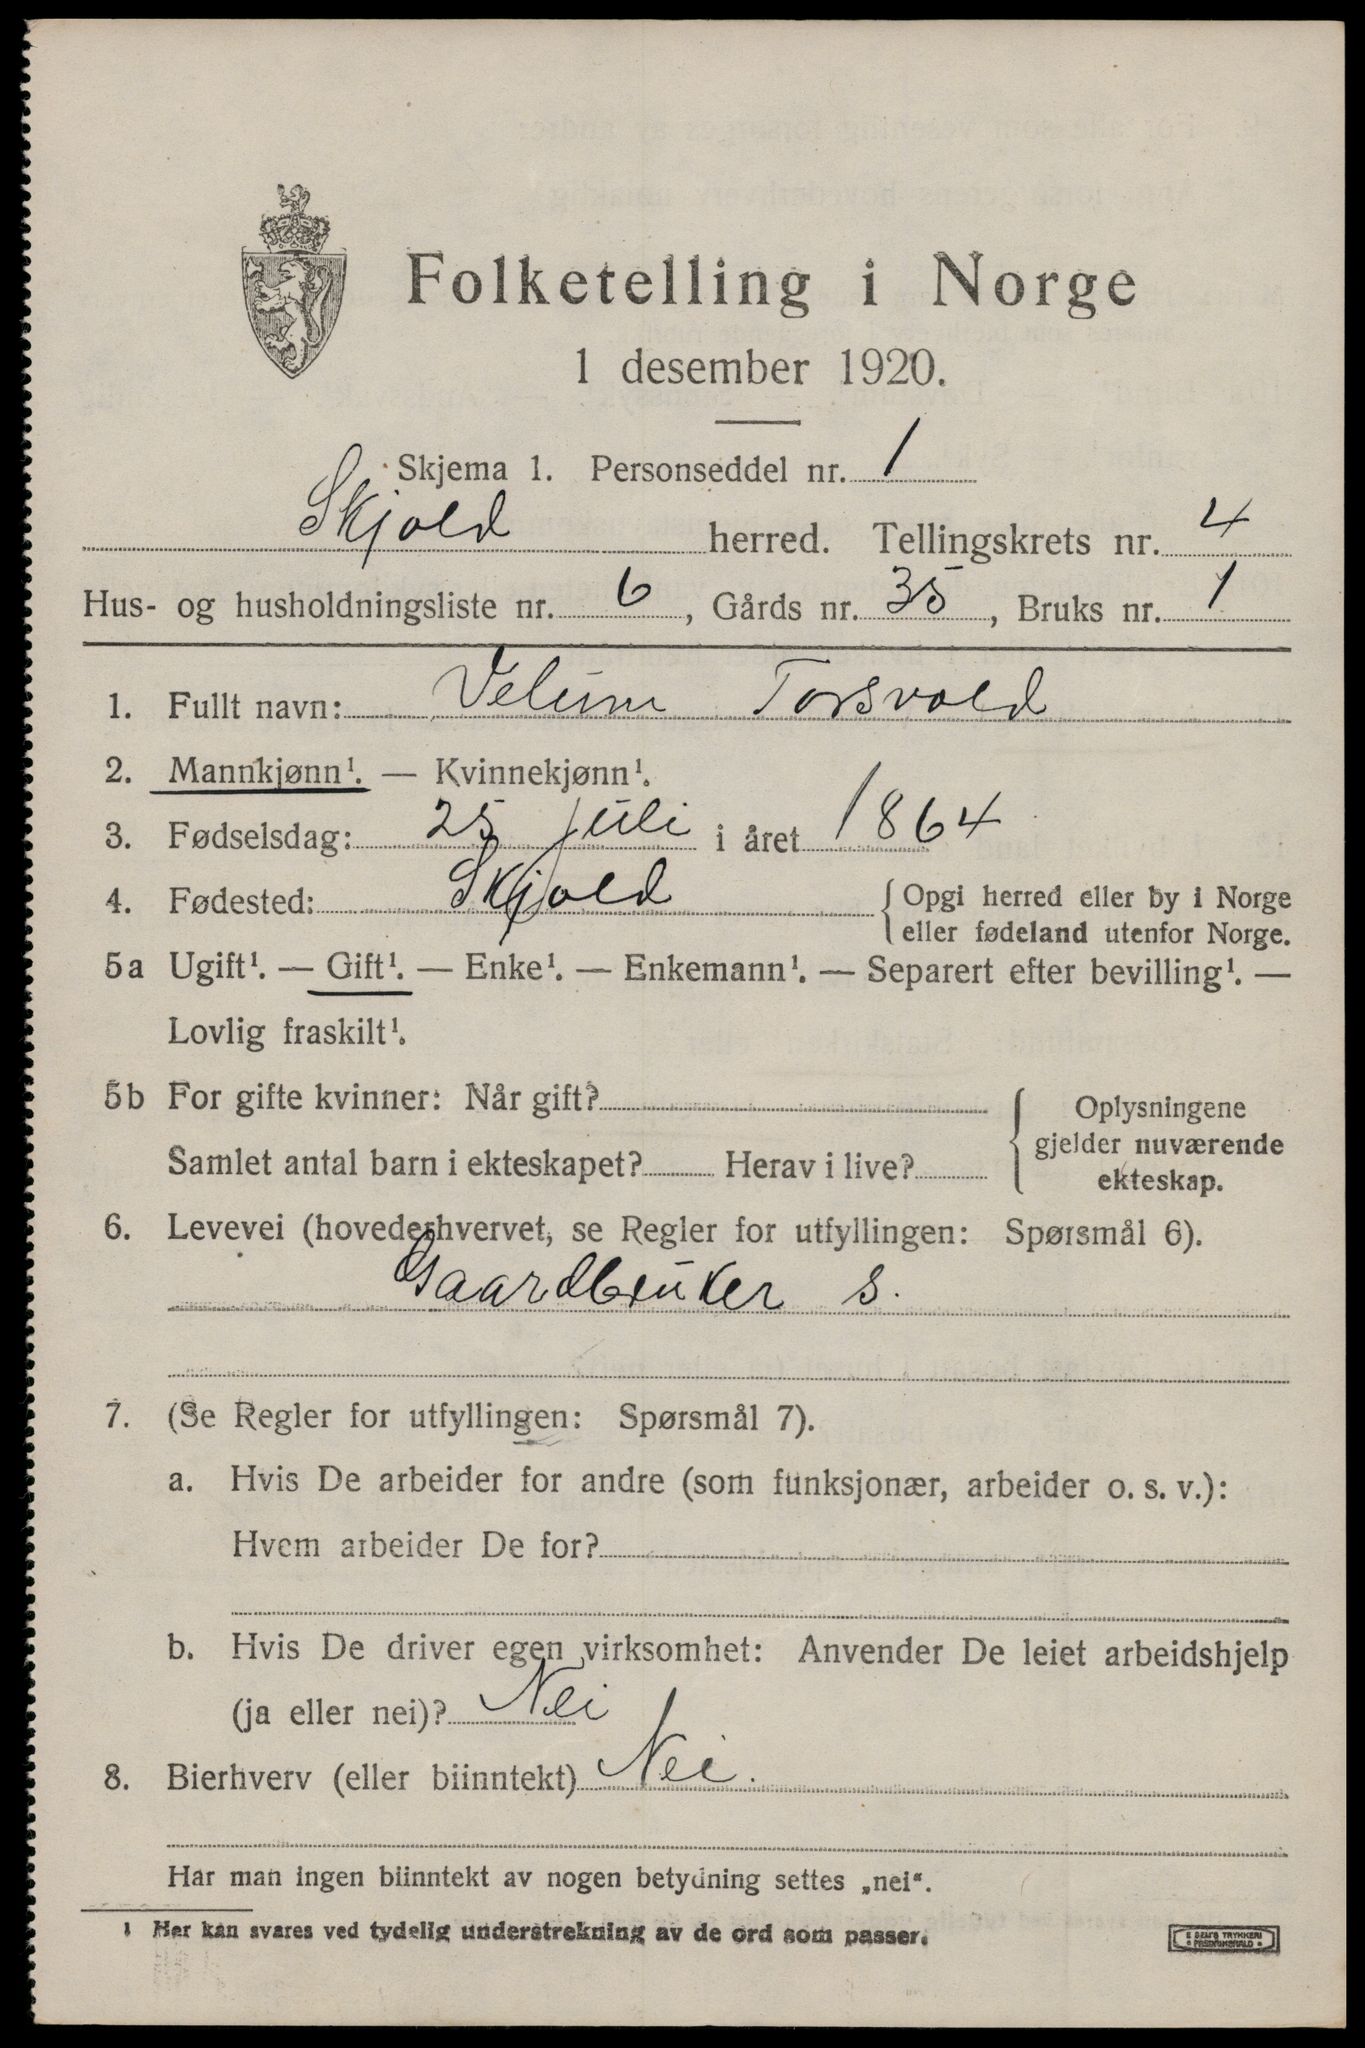 Folketelling i Norge
1 desember 1920.
Skjema 1. Personseddel nr. 1
Skjold herred. Tellingskrets nr. 4
Hus- og husholdningsliste nr. 6, Gårds nr. 35, Bruks nr. 1
1. Fullt navn: Velum Torsvold
2. Mannkjønn¹. — Kvinnekjønn¹.
3. Fødselsdag: 25 Juli i året 1864
4. Fødested: Skjold { Opgi herred eller by i Norge
eller fødeland utenfor Norge.
5a Ugift¹. — Gift¹. — Enke¹. — Enkemann¹. — Separert efter bevilling¹. —
Lovlig fraskilt¹.
5b For gifte kvinner: Når gift?
Samlet antal barn i ekteskapet? Herav i live?
Oplysningene
gjelder nuværende
ekteskap.
6. Levevei (hovederhvervet, se Regler for utfyllingen: Spørsmål 6).
Gaardbruker s.
7. (Se Regler for utfyllingen: Spørsmål 7).
a. Hvis De arbeider for andre (som funksjonær, arbeider o. s. v.):
Hvem arbeider De for?
b. Hvis De driver egen virksomhet: Anvender De leiet arbeidshjelp
(ja eller nei)? Nei
8. Bierhverv (eller biinntekt) Nei.
Har man ingen biinntekt av nogen betydning settes „nei“.
1 Her kan svares ved tydelig understrekning av de ord som passer.